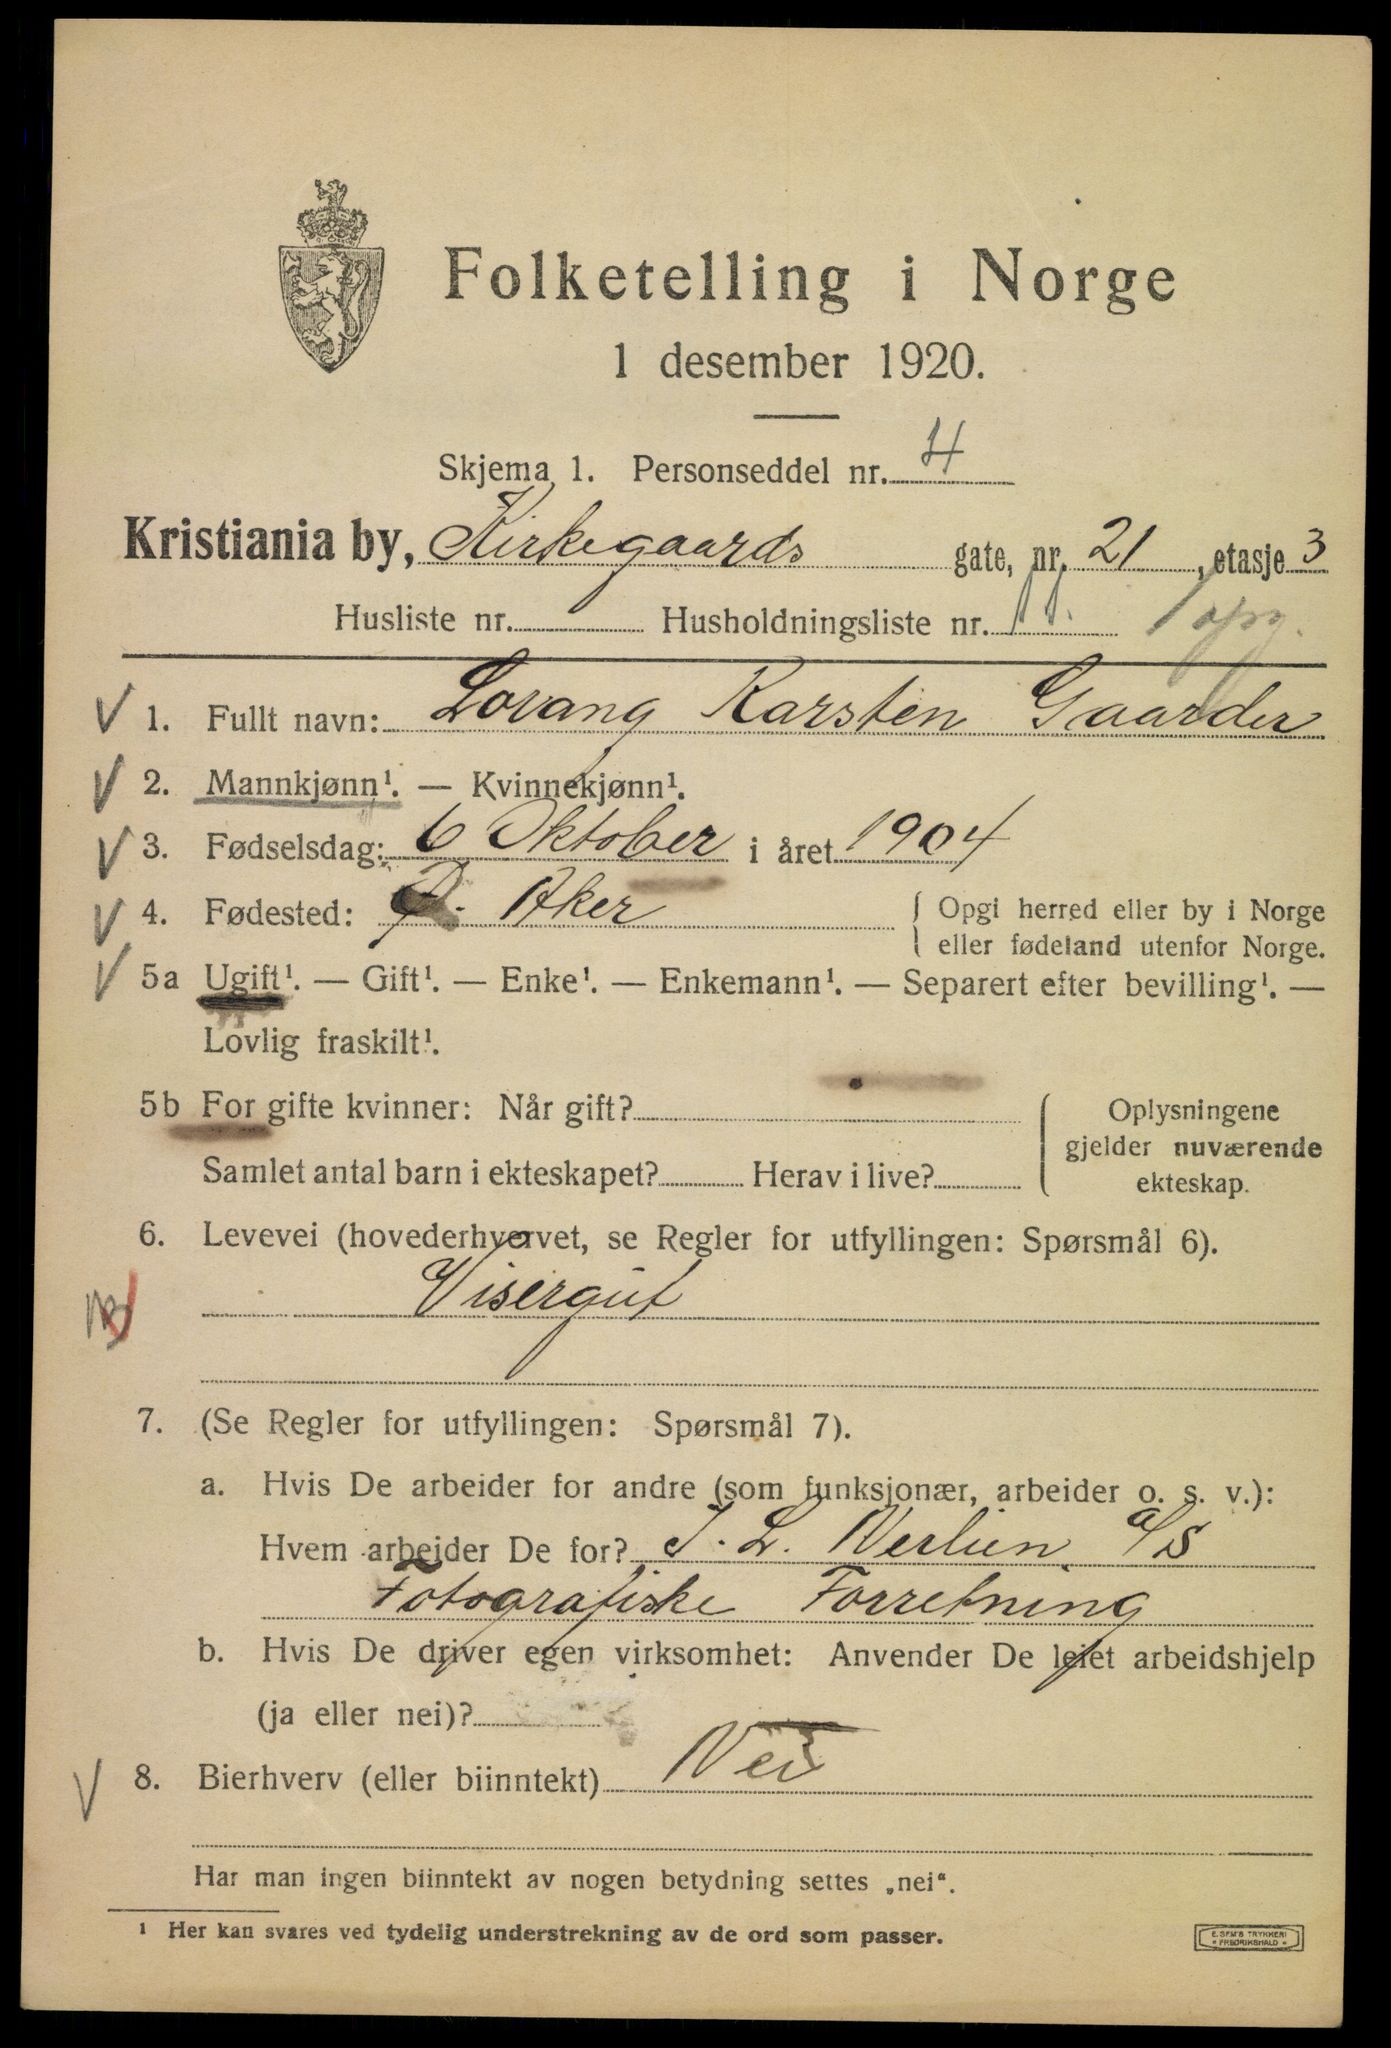 Folketelling i Norge
1 desember 1920.
Skjema 1. Personseddel nr. 4
Kristiania by, Kirkegaards gate, nr. 21, etasje 3
Husliste nr. Husholdningsliste nr. 1 opg.
1. Fullt navn: Lorang Karsten Gaarder
2. Mannkjønn¹. — Kvinnekjønn¹.
3. Fødselsdag: 6 Oktober i året 1904
4. Fødested: Ø. Aker { Opgi herred eller by i Norge
eller fødeland utenfor Norge.
5a Ugift¹. — Gift¹. — Enke¹. — Enkemann¹. — Separert efter bevilling¹. —
Lovlig fraskilt¹.
5b For gifte kvinner: Når gift? { Oplysningene
gjelder nuværende
Samlet antal barn i ekteskapet? Herav i live?
ekteskap.
6. Levevei (hovederhvervet, se Regler for utfyllingen: Spørsmål 6).
NB Visergut
7. (Se Regler for utfyllingen: Spørsmål 7).
a. Hvis De arbeider for andre (som funksjonær, arbeider o. s. v.):
Hvem arbeider De for? J. L. Nerlien A/S
Fotografiske Forretning
b. Hvis De driver egen virksomhet: Anvender De leiet arbeidshjelp
(ja eller nei)?
8. Bierhverv (eller biinntekt) Nei
Har man ingen biinntekt av nogen betydning settes „nei“.
¹ Her kan svares ved tydelig understrekning av de ord som passer.
E. SEM'S TRYKKERI
FREDRIKSHALD